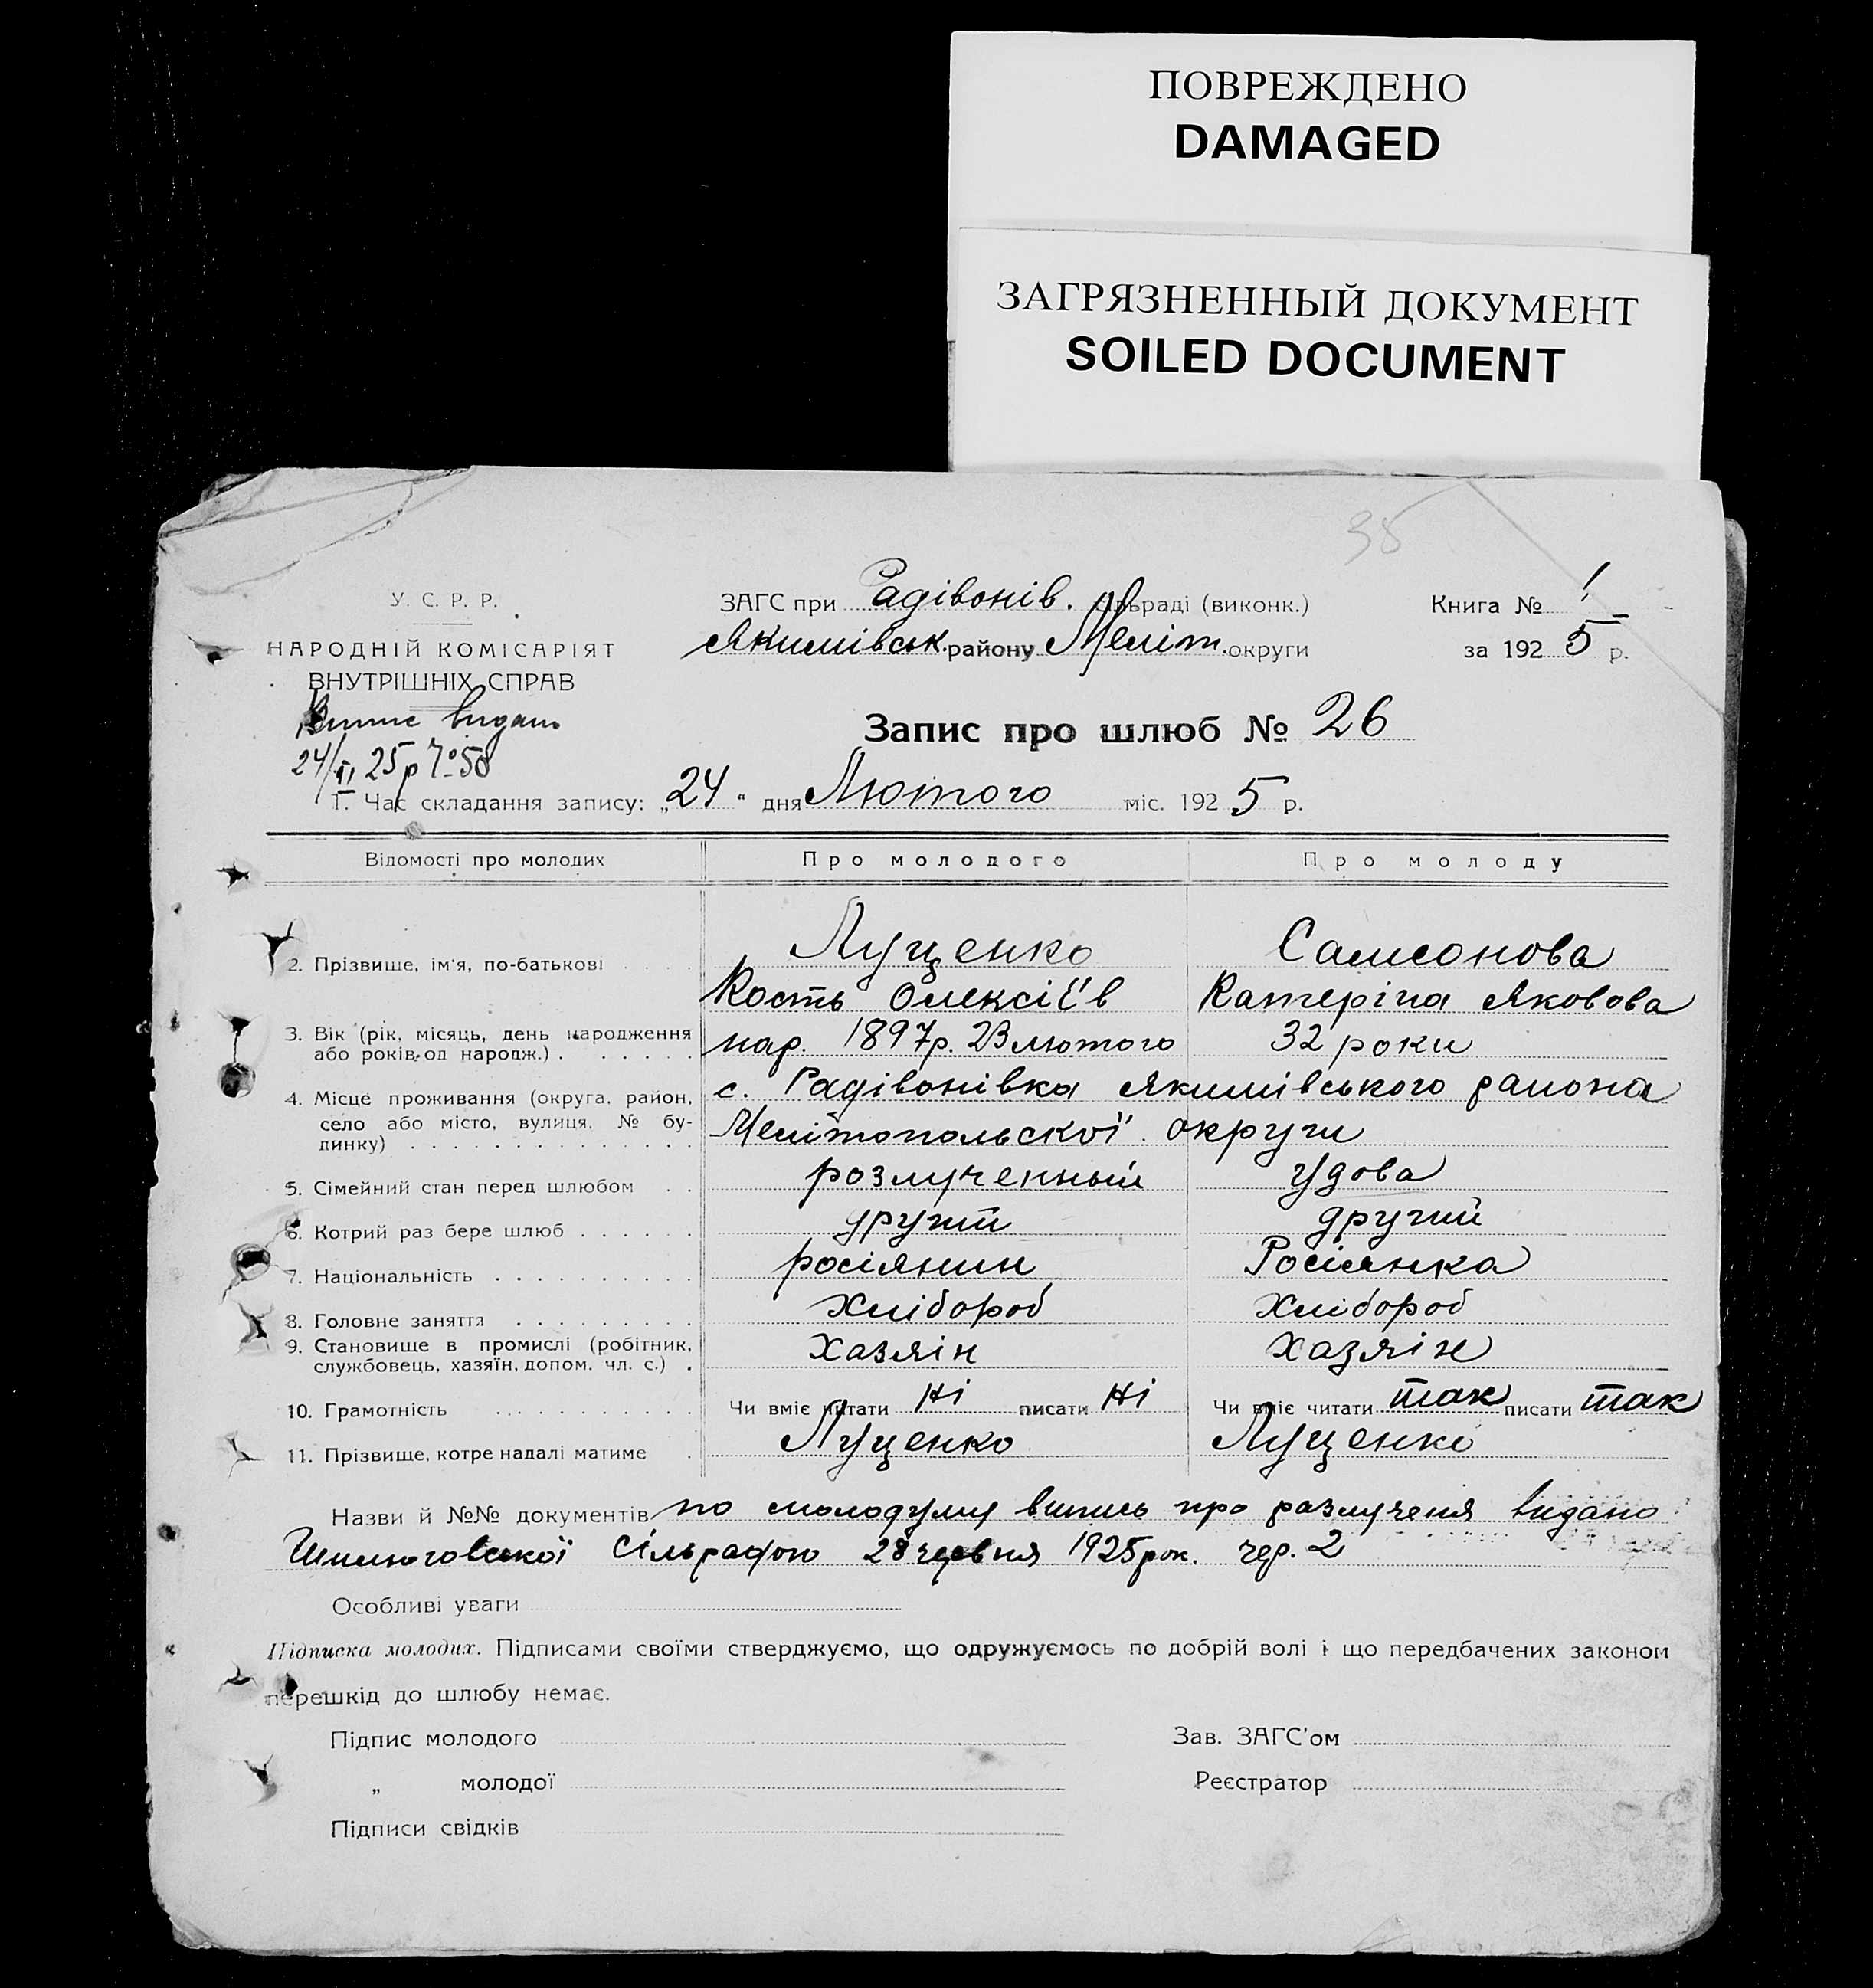 ПОВРЕЖДЕНО
DAMAGED
ЗАГРЯЗНЕННЫЙ ДОКУМЕНТ
SOILED DOCUMENT
38
У. С. Р. Р.
НАРОДНІЙ КОМІСАРІЯТ
ВНУТРІШНІХ СПРАВ
Випис видано
24/II 25р № 58
ЗАГС при Радівонів. сільраді (виконк.)
Якимівськ. району Меліт. округи
Книга № 1
за 1925 р.
Запис про шлюб № 26
1. Час складання запису: „24“ дня Лютого міс. 1925 р.
Відомості про молодих Про молодого Про молоду
2. Прізвище, ім'я, по-батькові Луценко Самсонова
Кость Олексіїв Катеріна Яковова
3. Вік (рік, місяць, день народження або років од народж.) нар. 1897р. 23 лютого 32 роки
4. Місце проживання (округа, район, село або місто, вулиця, № будинку) с. Радівонівка Якимівського района
Мелітопольскої округи
5. Сімейний стан перед шлюбом розлученный удова
6. Котрий раз бере шлюб другий другий
7. Національність росіянин Росіянка
8. Головне заняття Хлібороб Хлібороб
9. Становище в промислі (робітник, службовець, хазяїн, допом. чл. с.) Хазяін Хазяін
10. Грамотність Чи вміє читати Ні писати Ні Чи вміє читати так писати так
11. Прізвище, котре надалі матиме Луценко Луценко
Назви й №№ документів по молодуму випись про разлученя видано
Сільрадою 28 1925 рок. чер. 2
Особливі уваги
Підписка молодих. Підписами своїми стверджуємо, що одружуємось по добрій волі і що передбачених законом
перешкід до шлюбу немає.
Підпис молодого Зав. ЗАГС'ом
„ молодої Реєстратор
Підписи свідків